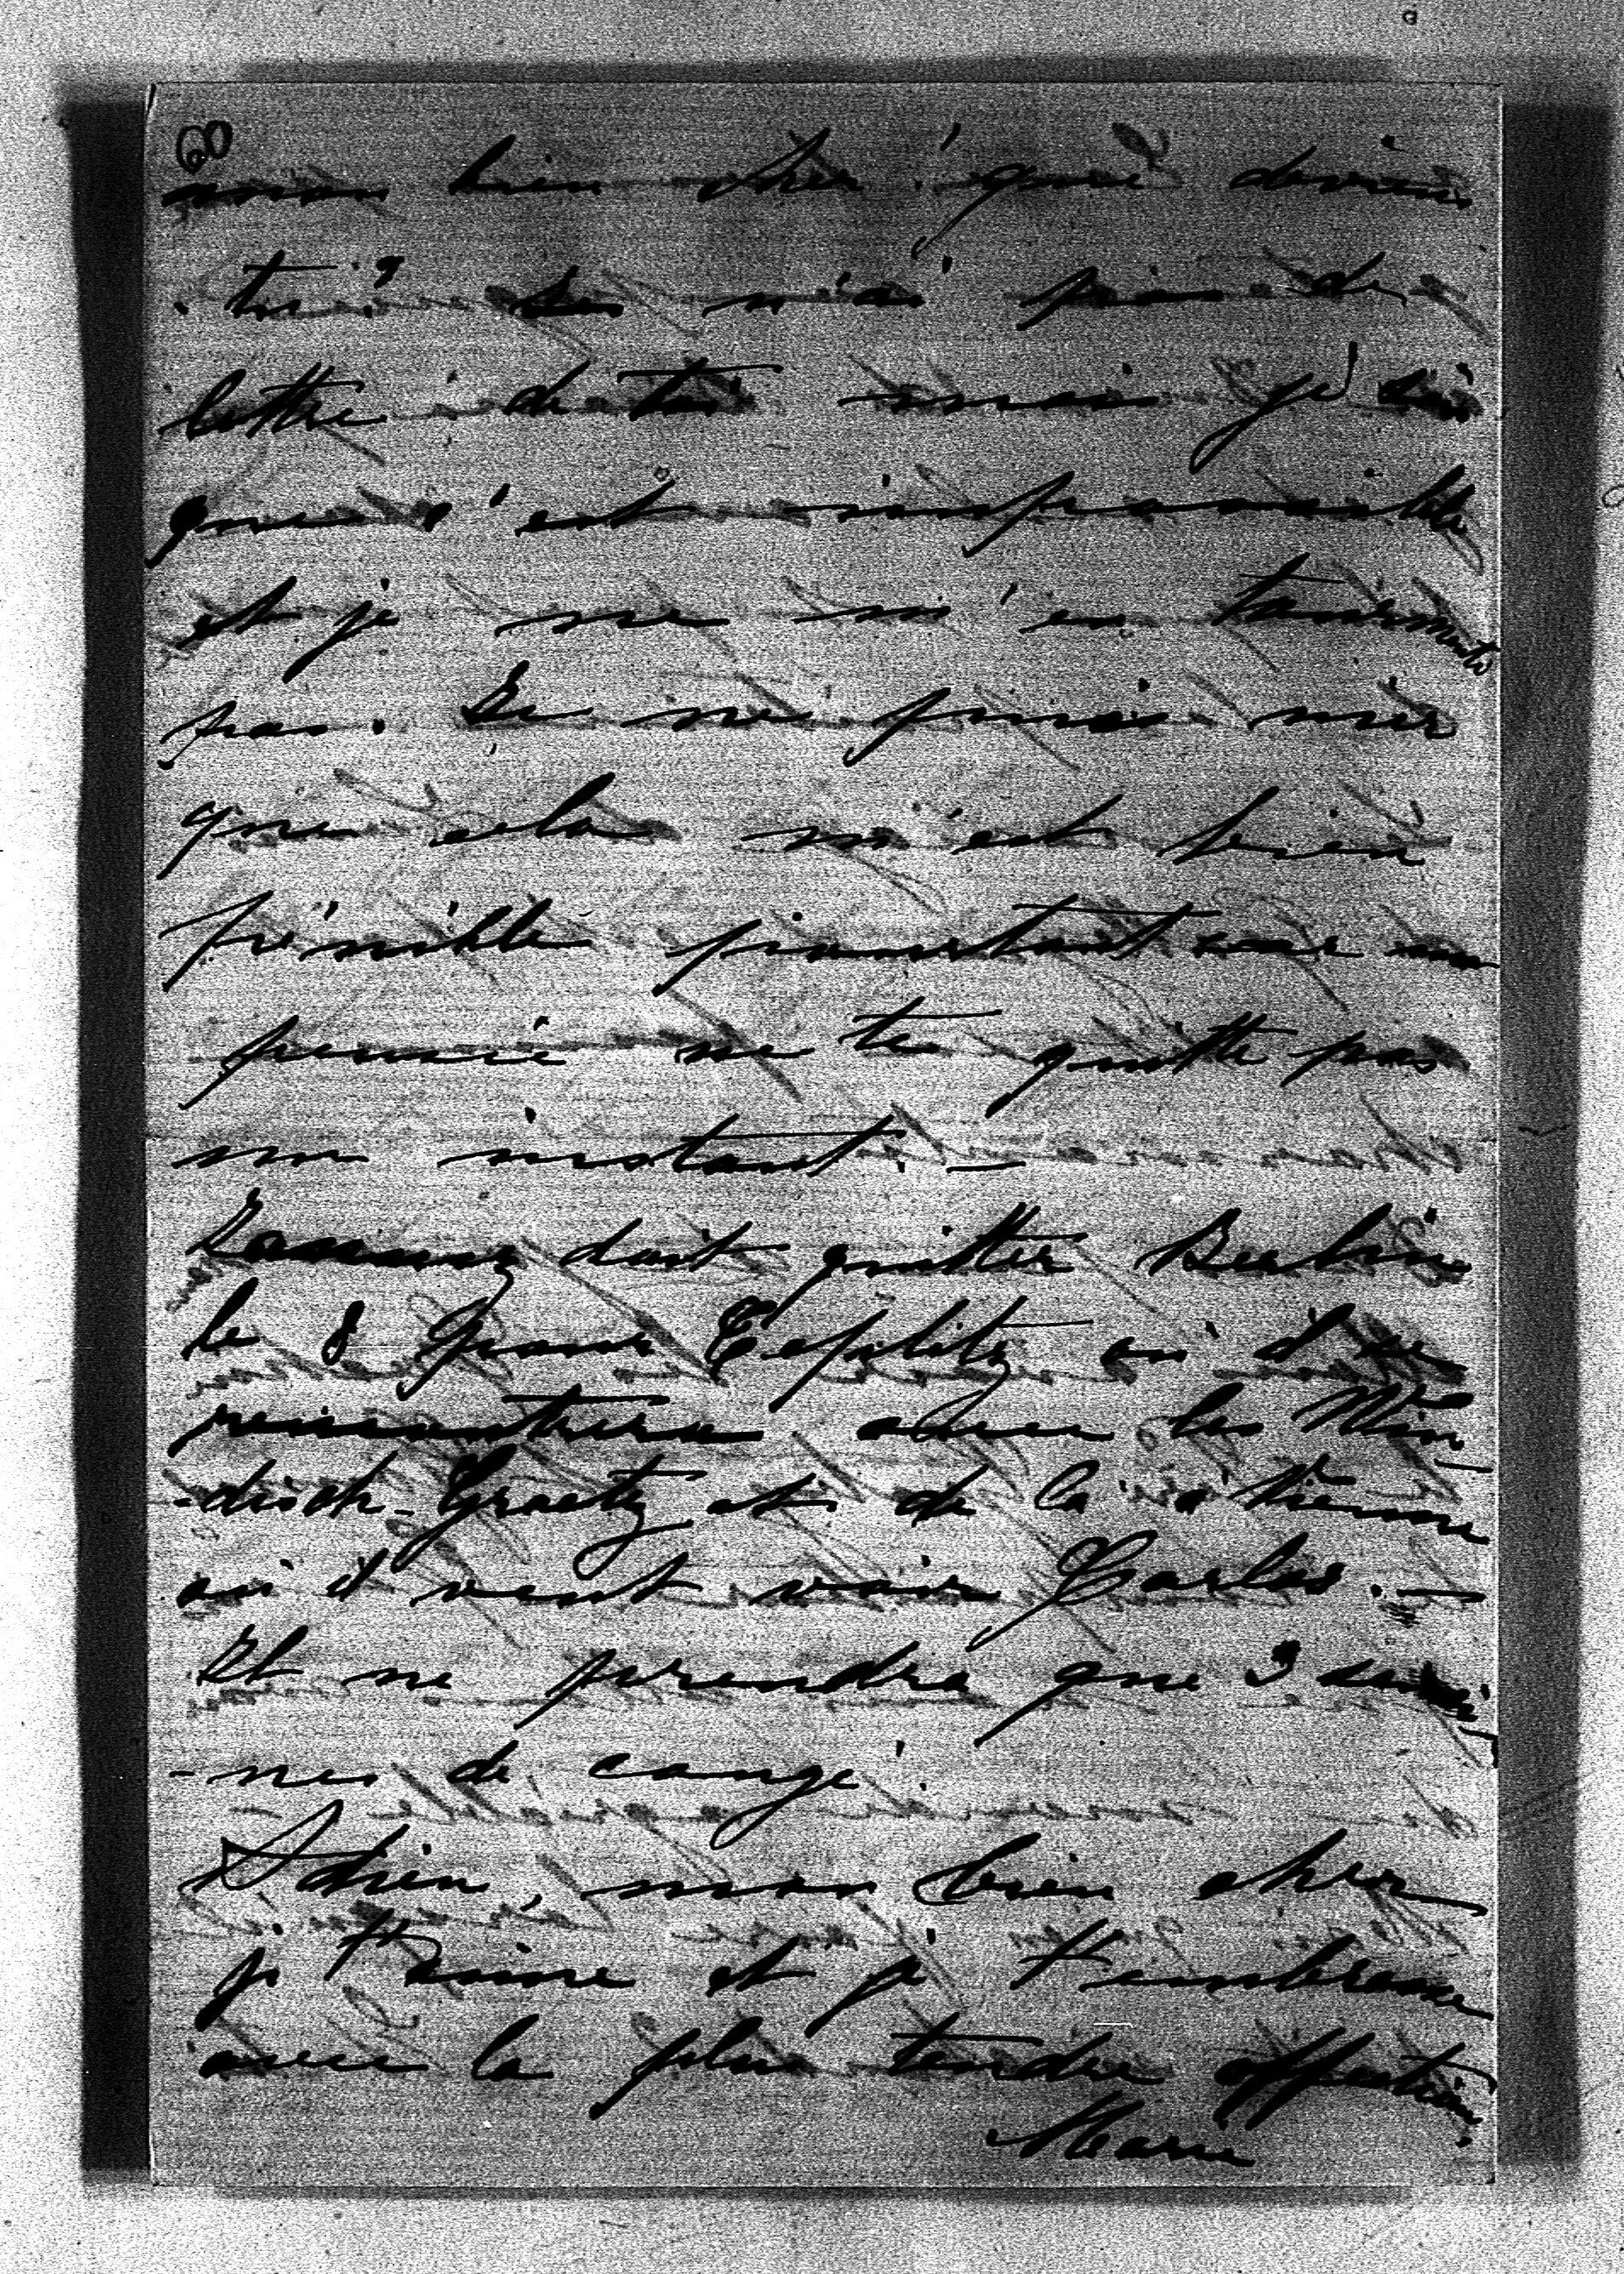 60
mon bien cher, que deviens
-tu? Je n'ai pas de
lettre de toi mais je sais
que c'est impossible
et je ne m'en tourmente
pas. Je ne puis nier
que cela m'est bien
pénible pourtant car ma
pensée ne te quitte pas
un instant. —
doit quitter Berlin
le 8 pour Teplitz où il se
rencontrera avec les Win
-disch-Graetz et de là à Vienne
où il veut voir Carlos. —
Il ne prendra que 3 semai
-nes de congé.
Adieu, mon bien cher
je t'aime et je t'embrasse
avec la plus tendre affection.
Marie